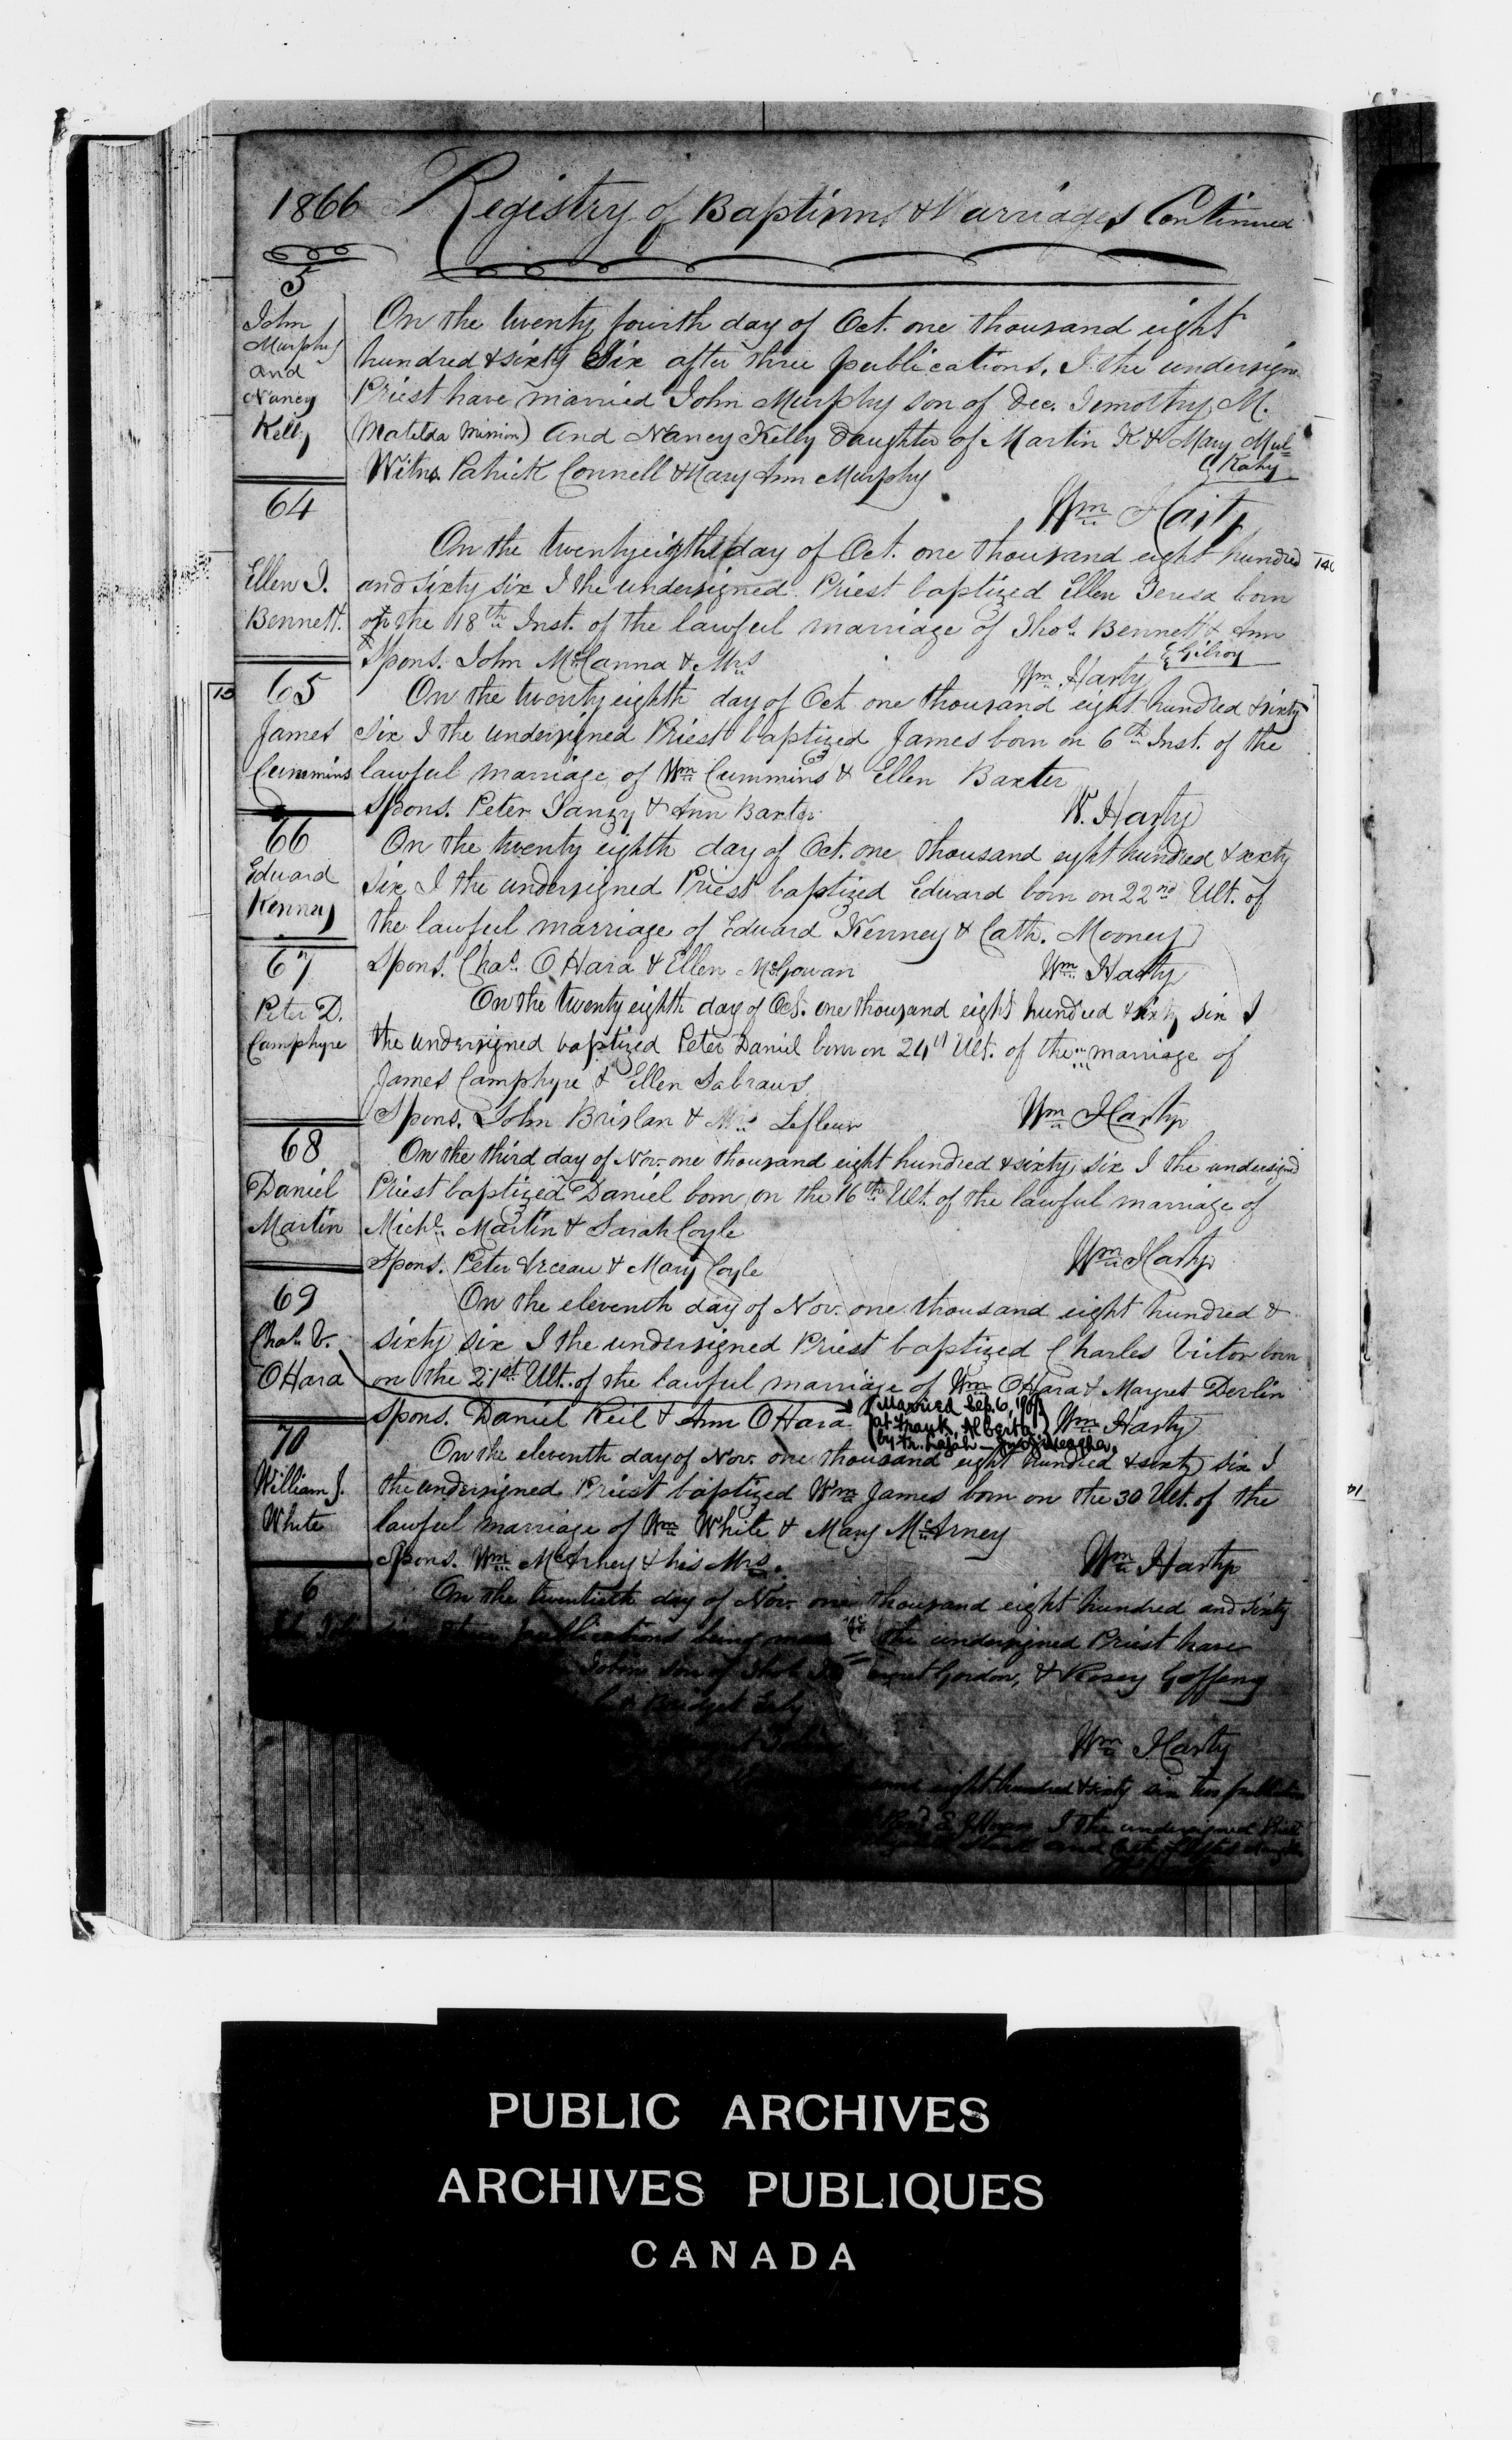 1866 Registry of Baptisms & Marriages Continued
5
John
Murphy
and
Nancy
Kelly
On the twenty fourth day of Oct. one thousand eight
hundred & sixty Six after three publications, I the undersigne
Priest have married John Murphy son of Dec. Timothy M.
(Matilda Minion) and Nancy Kelly daughter of Martin K & Mary Mul=
Cahy
Witns. Patrick Connell & Mary Ann Murphy
Wm Harty
64
Ellen T.
Bennett.
On the twentyeighth day of Oct. one thousand eight hundred
and sixty six I the undersigned Priest baptized Ellen Teresa born
on the 18th Inst. of the lawful marriage of Thos. Bennett & Ann
Gilroy
Spons. John McCanna & Mrs
Wm. Harty
65
James
Cummins
On the twenty eighth day of Oct one thousand eight hundred & sixty
six I the undersigned Priest baptized James born on 6th Inst. of the
lawful marriage of Wm Cummins & Ellen Baxter
Spons. Peter Tanzy & Ann Baxter
W. Harty
66
Edward
Kenney
On the twenty eighth day of Oct. one thousand eight hundred & sixty
six I the undersigned Priest baptized Edward born on 22nd Ult. of
the lawful marriage of Edward Kenney & Cath. Mooney
Spons. Chas. O Hara & Ellen McGowan
Wm Harty
67
Peter D.
Camphyre
On the twenty eighth day of Oct. one thousand eight hundred & sixty six I
the undersigned baptized Peter Daniel born on 24th Ult. of the marriage of
James Camphyre & Ellen Sabraws
Spons. John Brislan & Mrs Lefleur
Wm Harty
68
Daniel
Martin
On the third day of Nov. one thousand eight hundred & sixty six I the undersigned
Priest baptized Daniel born on the 16th Ult. of the lawful marriage of
Michl. Martin & Sarah Coyle
Spons. Peter Arceau & Mary Coyle
Wm Harty
69
Chas. V.
OHara
On the eleventh day of Nov. one thousand eight hundred &
sixty six I the undersigned Priest baptized Charles Victor born
on the 21st Ult. of the lawful marriage of Wm OHara & Margret Devlin
Spons. Daniel Keil & Ann OHara
(Married Sep. 6, 190
at Frank, Alberta)
by Fr. Lajat
Wm Harty
70
William J.
White
On the eleventh day of Nov. one thousand eight hundred & sixty six I
the undersigned Priest baptized Wm James born on the 30 Ult. of the
lawful marriage of Wm White & Mary McArney
Spons. Wm McArney & his Mrs.
Wm Harty
6
On the twentieth day of Nov. one thousand eight hundred and sixty
publications being made the undersigned Priest have
John son of Gordon, & Rosey Gaffeny
Bridget
Wm Harty
eight hundred & sixty six two publications
I the undersigned Priest
and
PUBLIC ARCHIVES
ARCHIVES PUBLIQUES
CANADA